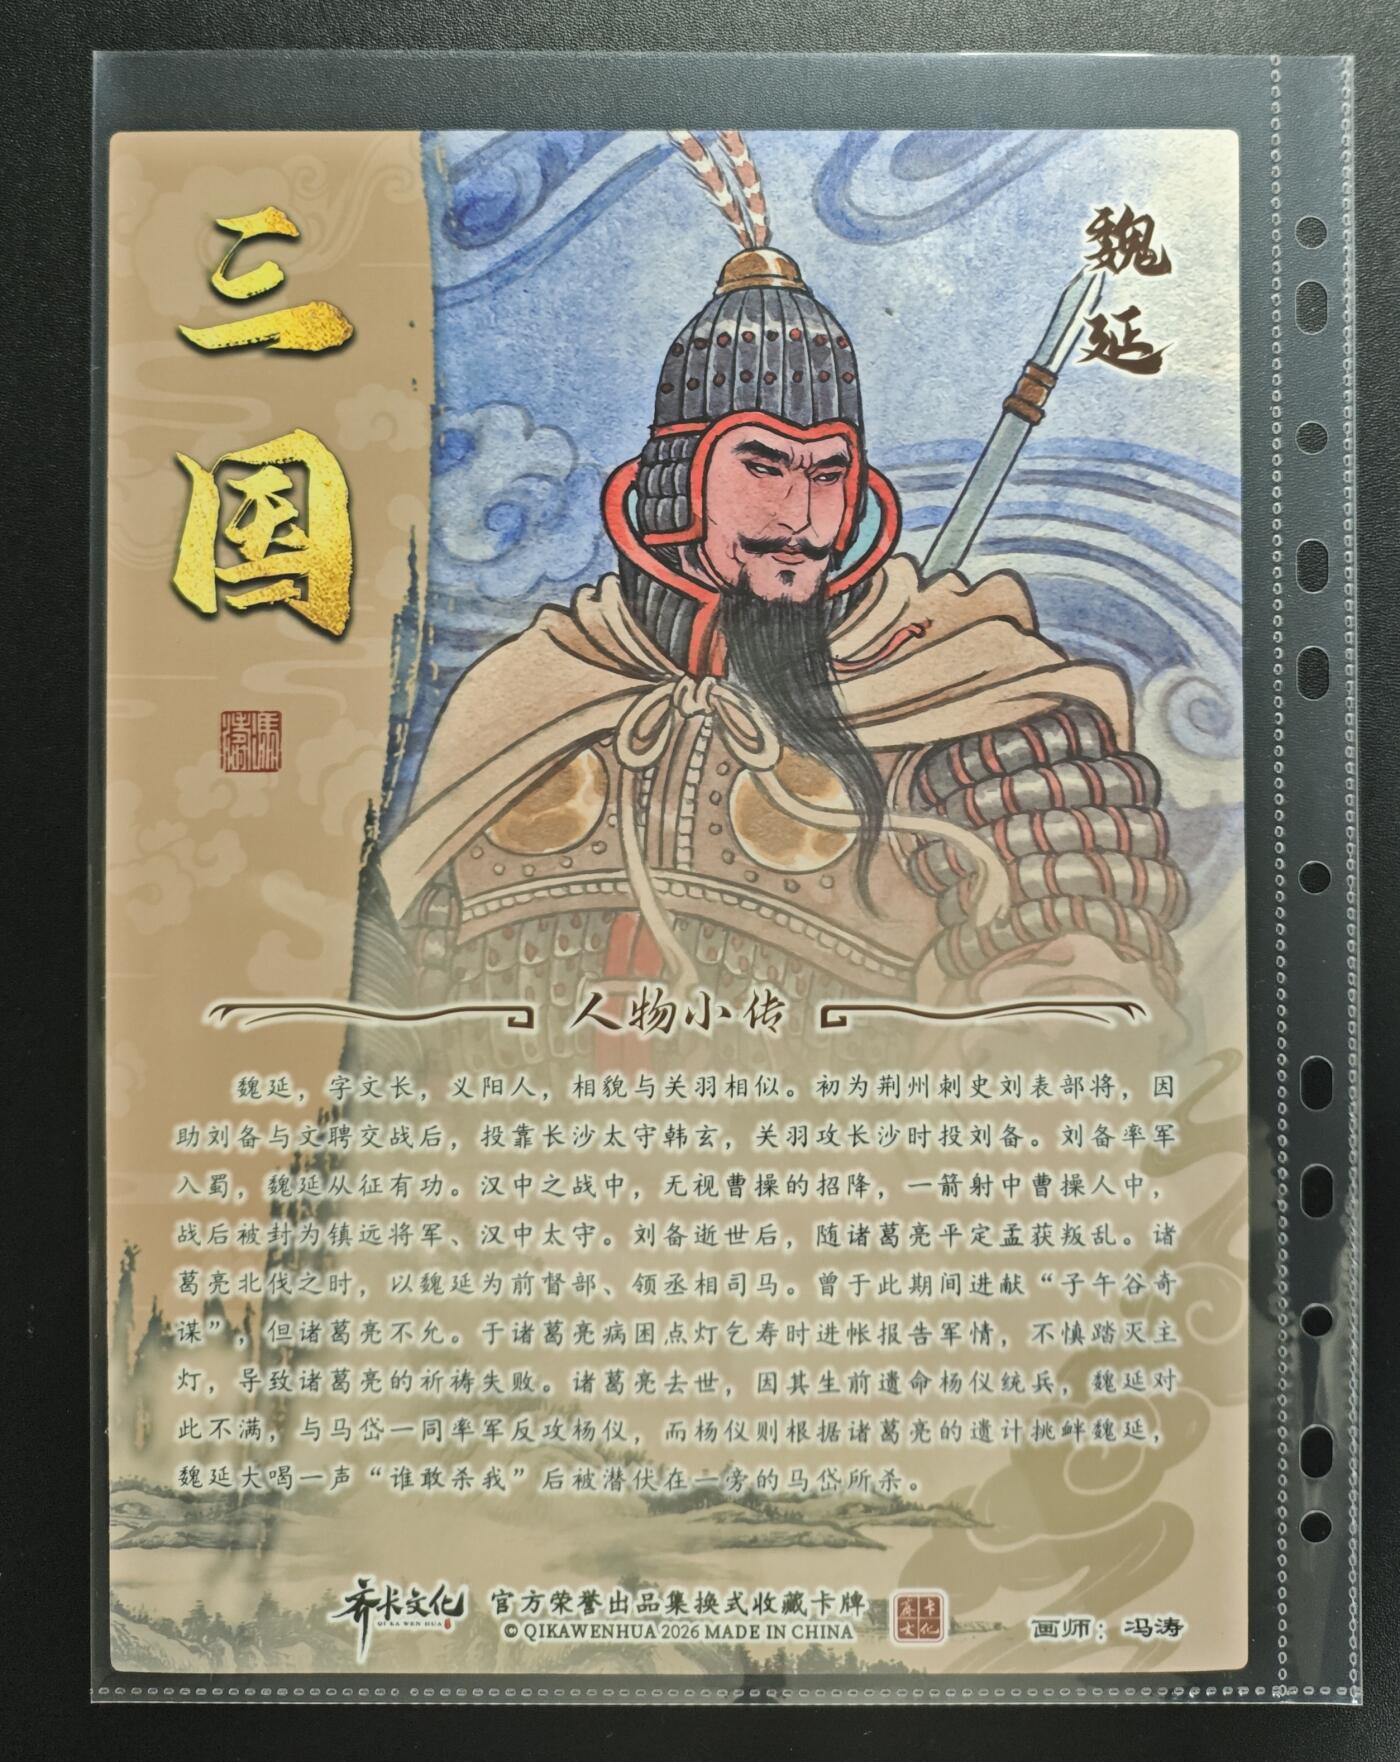 三国
魏延
冯涛
人物小传
魏延，字文长，义阳人，相貌与关羽相似。初为荆州刺史刘表部将，因
助刘备与文聘交战后，投靠长沙太守韩玄，关羽攻长沙时投刘备。刘备率军
入蜀，魏延从征有功。汉中之战中，无视曹操的招降，一箭射中曹操人中，
战后被封为镇远将军、汉中太守。刘备逝世后，随诸葛亮平定孟获叛乱。诸
葛亮北伐之时，以魏延为前督部、领丞相司马。曾于此期间进献“子午谷奇
谋”，但诸葛亮不允。于诸葛亮病困点灯乞寿时进帐报告军情，不慎踏灭主
灯，导致诸葛亮的祈祷失败。诸葛亮去世，因其生前遗命杨仪统兵，魏延对
此不满，与马岱一同率军反攻杨仪，而杨仪则根据诸葛亮的遗计挑衅魏延，
魏延大喝一声“谁敢杀我”后被潜伏在一旁的马岱所杀。
齐卡文化
QI KA WEN HUA
官方荣誉出品集换式收藏卡牌
© QIKAWENHUA 2026 MADE IN CHINA
齐卡文化
画师：冯涛